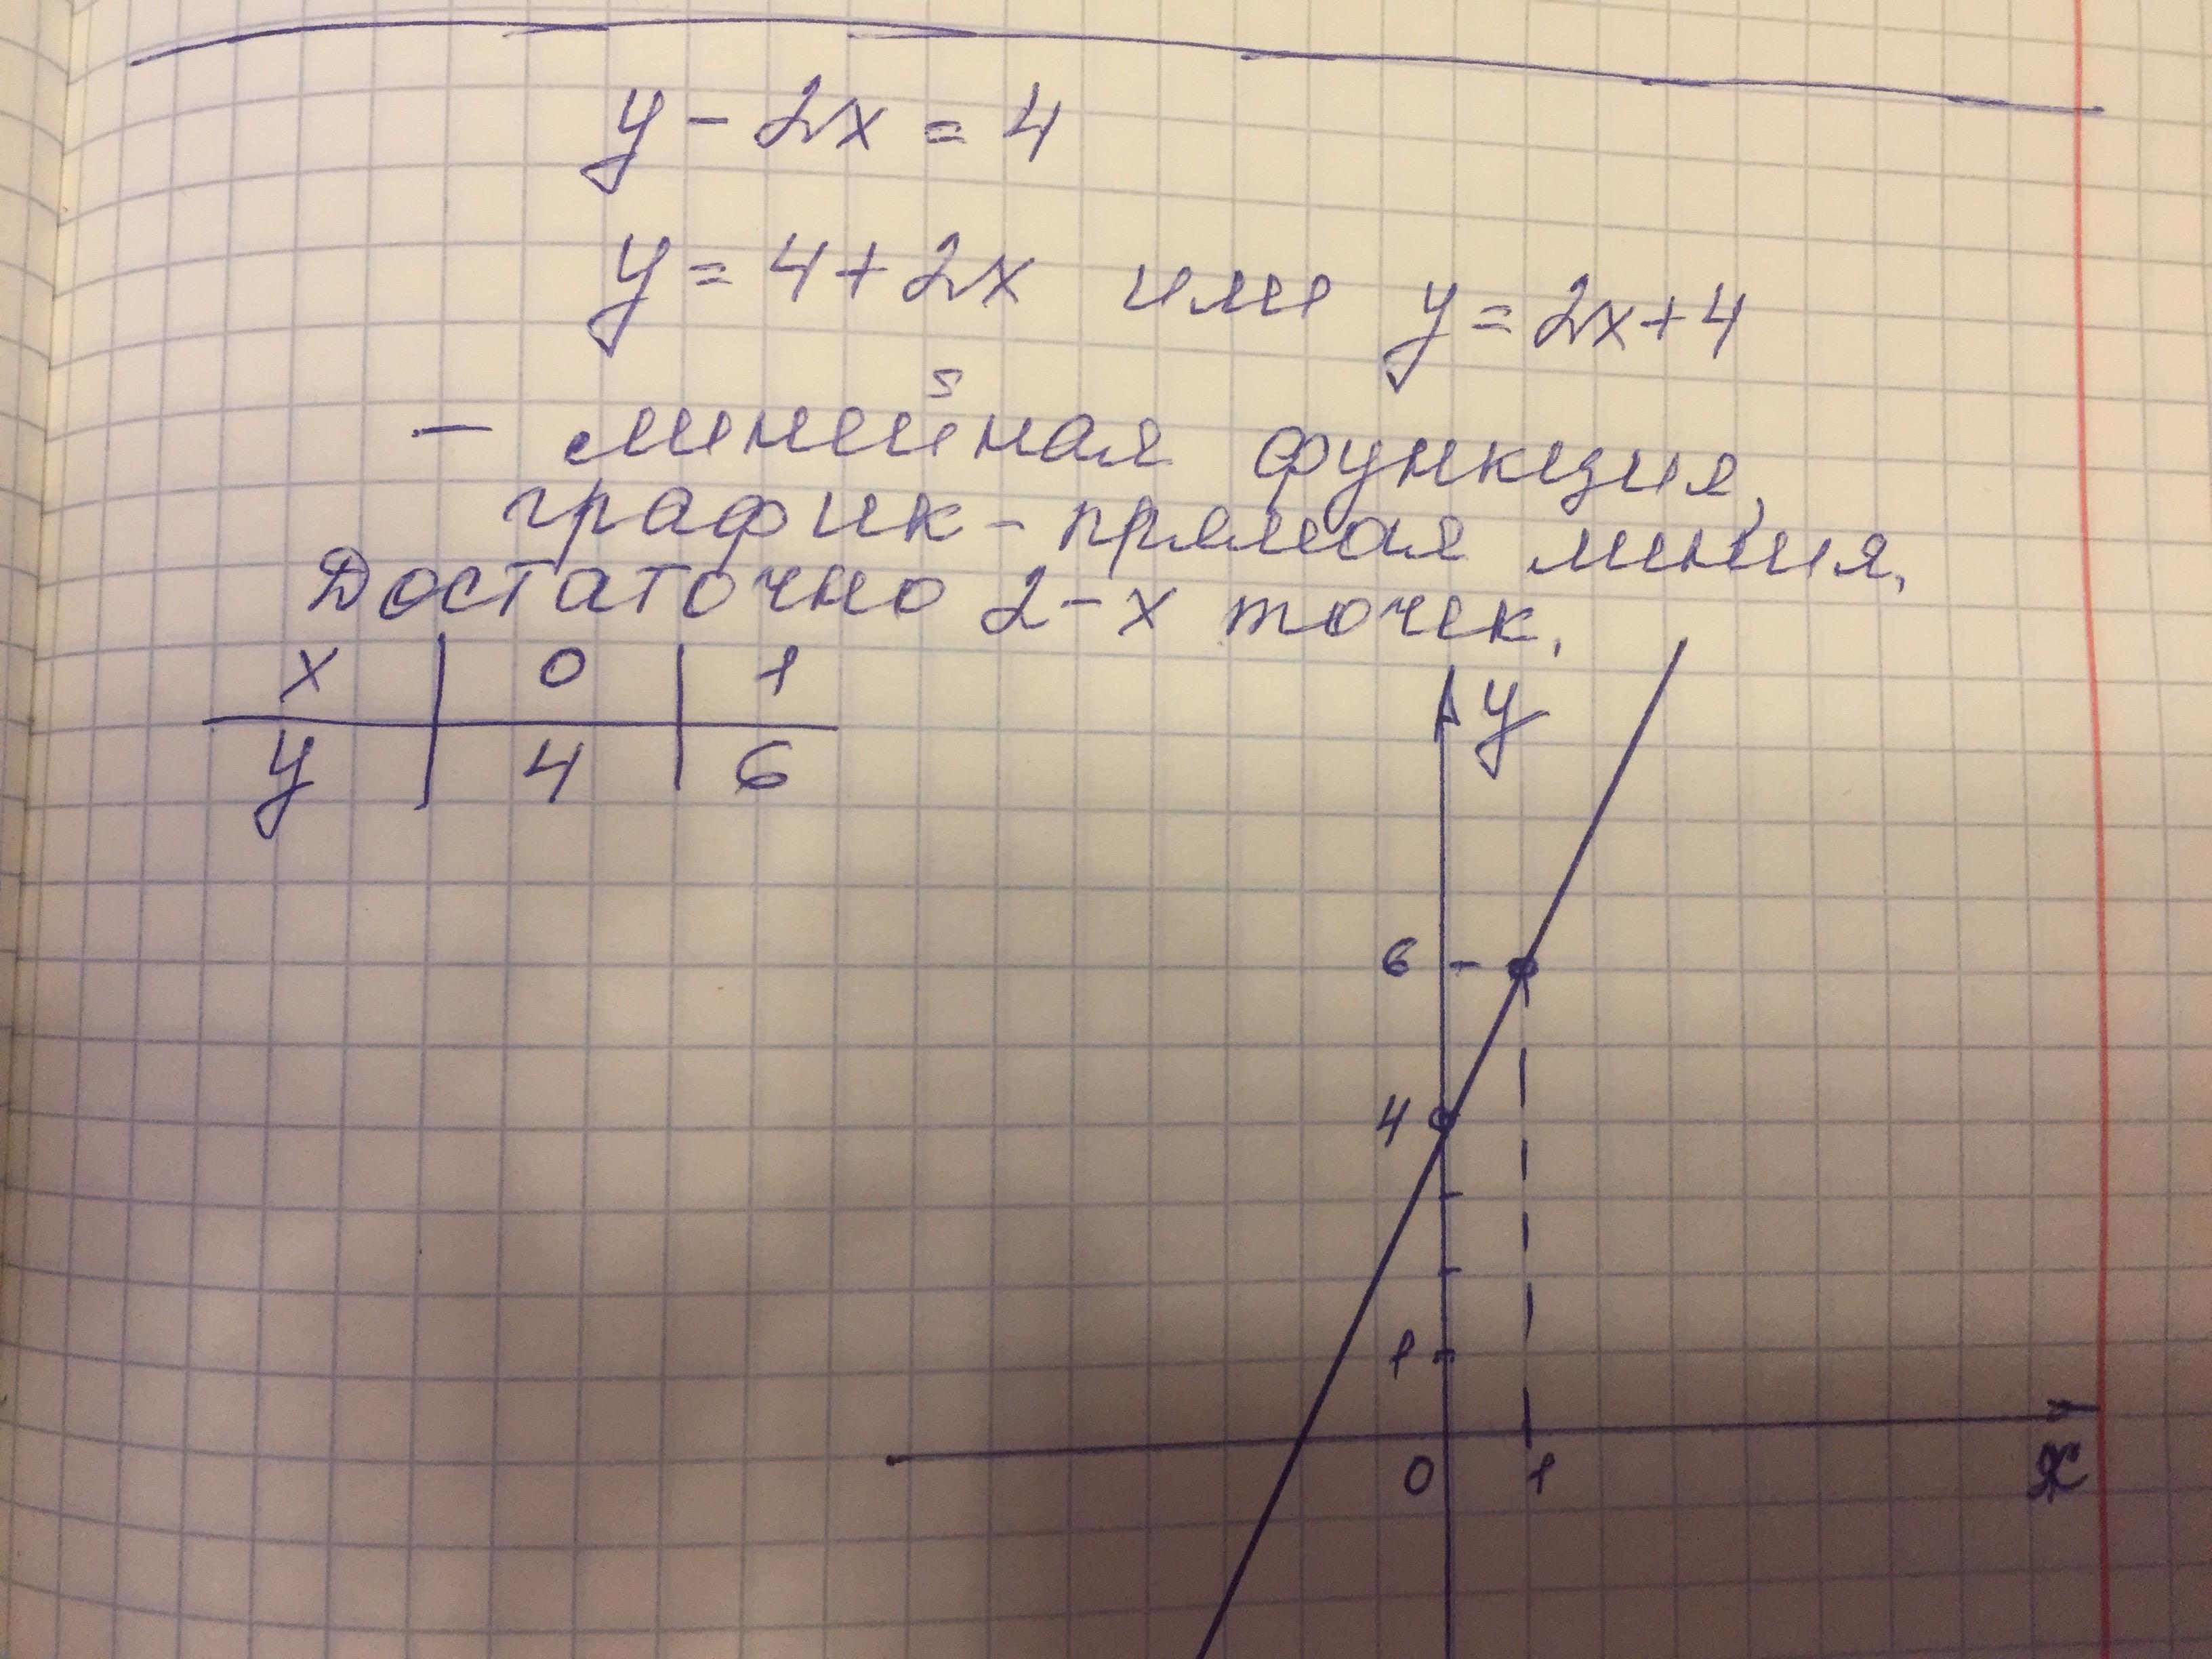 y - 2x = 4
y = 4 + 2x или y = 2x + 4
- линейная функция,
график - прямая линия.
Достаточно 2-х точек.
x | 0 | 1
y | 4 | 6
y
6
4
1
0 1 x